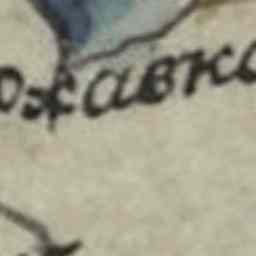 ржавка